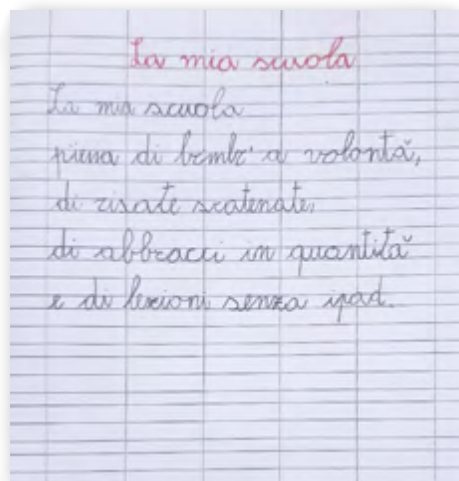 La mia scuola
La mia scuola
piena di bimbi a volontà,
di risate scatenate,
di abbracci in quantità
e di lezioni senza ipad.